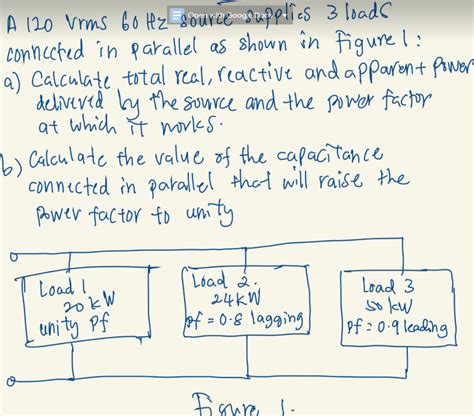 A 120 Vrms 60 Hz source supplies 3 loads
connected in parallel as shown in figure 1:
a) Calculate total real, reactive and apparent power
delivered by the source and the power factor
at which it works.
b) Calculate the value of the capacitance
connected in parallel that will raise the
power factor to unity
Load 1
20 kW
unity Pf
Load 2.
24 KW
pf = 0.8 lagging
Load 3
50 kW
Pf = 0.9 leading
Figure 1.